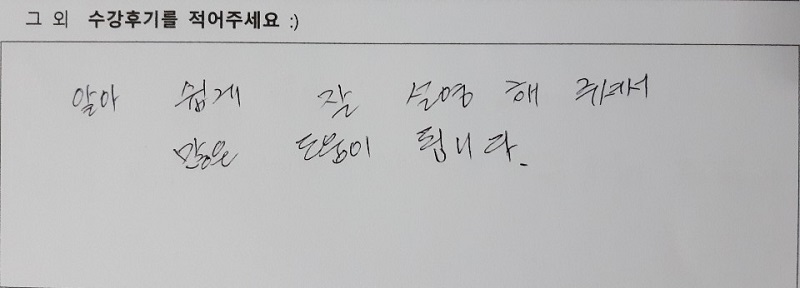 그 외 수강후기를 적어주세요 :)
알아 쉽게 잘 설명 해 줘서
많은 도움이 됩니다.